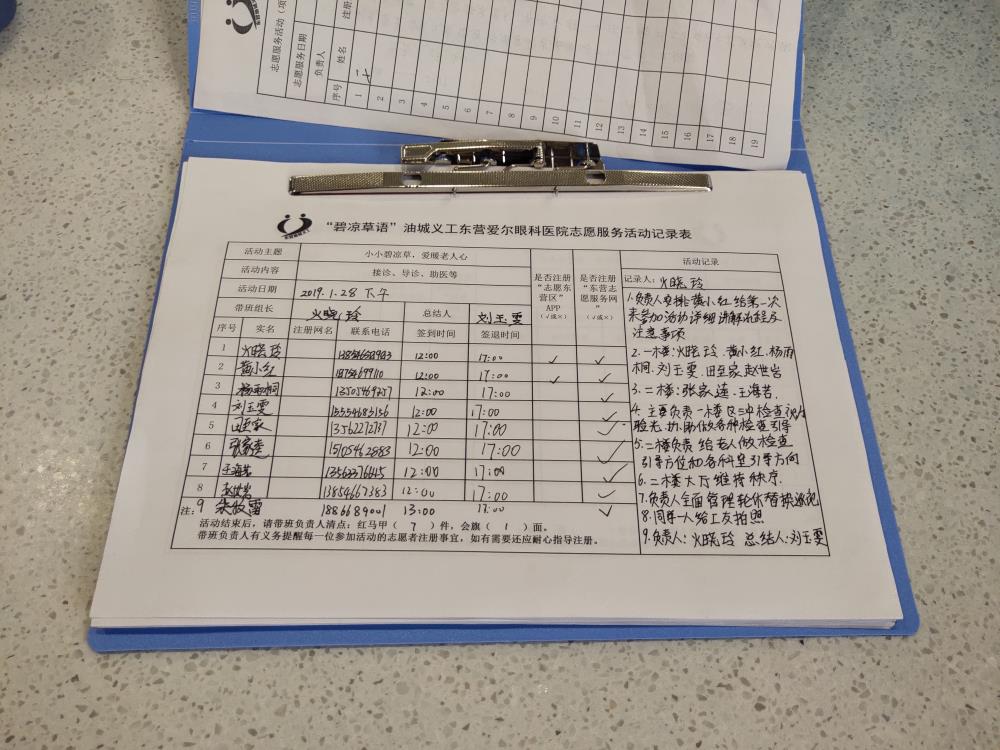 志愿服务活动(项
志愿服务日期
负责人
序号 姓名 注册
1
2
3
4
5
6
7
8
9
10
11
12
13
14
15
16
17
18
19
“碧凉草语”油城义工东营爱尔眼科医院志愿服务活动记录表
活动主题 小小碧凉草,爱暖老人心
活动内容 接诊、导诊、助医等
活动日期 2019.1.28 下午
带班组长 火晓玲 总结人 刘玉雯
序号 实名 注册网名 联系电话 签到时间 签退时间
是否注册“志愿东营区”APP(√或×)
是否注册“东营志愿服务网”(√或×)
1 火晓玲 12:00 17:00 √ √
2 黄小红 18754699110 12:00 17:00 √ √
3 杨雨桐 13505469257 12:00 17:00 √
4 刘玉雯 15554683156 12:00 17:00 √
5 田至家 13562272737 12:00 17:00 √
6 张家莲 15105462883 12:00 17:00 √
7 王海苦 12:00 17:00 √
8 赵世岩 13854667383 12:00 17:00 √
9 1886689001 13:00 17:00 √
注:
活动结束后,请带班负责人清点:红马甲( 7 )件,会旗( 1 )面。
带班负责人有义务提醒每一位参加活动的志愿者注册事宜,如有需要还应耐心指导注册。
活动记录
记录人:火晓玲
1.负责人安排黄小红给第一次
来参加活动详细讲解流程及
注意事项
2.一楼:火晓玲.黄小红.杨雨
桐.刘玉雯.田至家.赵世岩
3.二楼:张家莲.王海苦.
4.主要负责一楼区三中检查视力
验光.协助做各种检查引导
5.二楼负责给老人做检查
引导方位和各科室引导方向
6.二楼大厅维持秩序.
7.负责人全面管理轮休替换
8.同第一人给工友拍照
9.负责人:火晓玲 总结人:刘玉雯